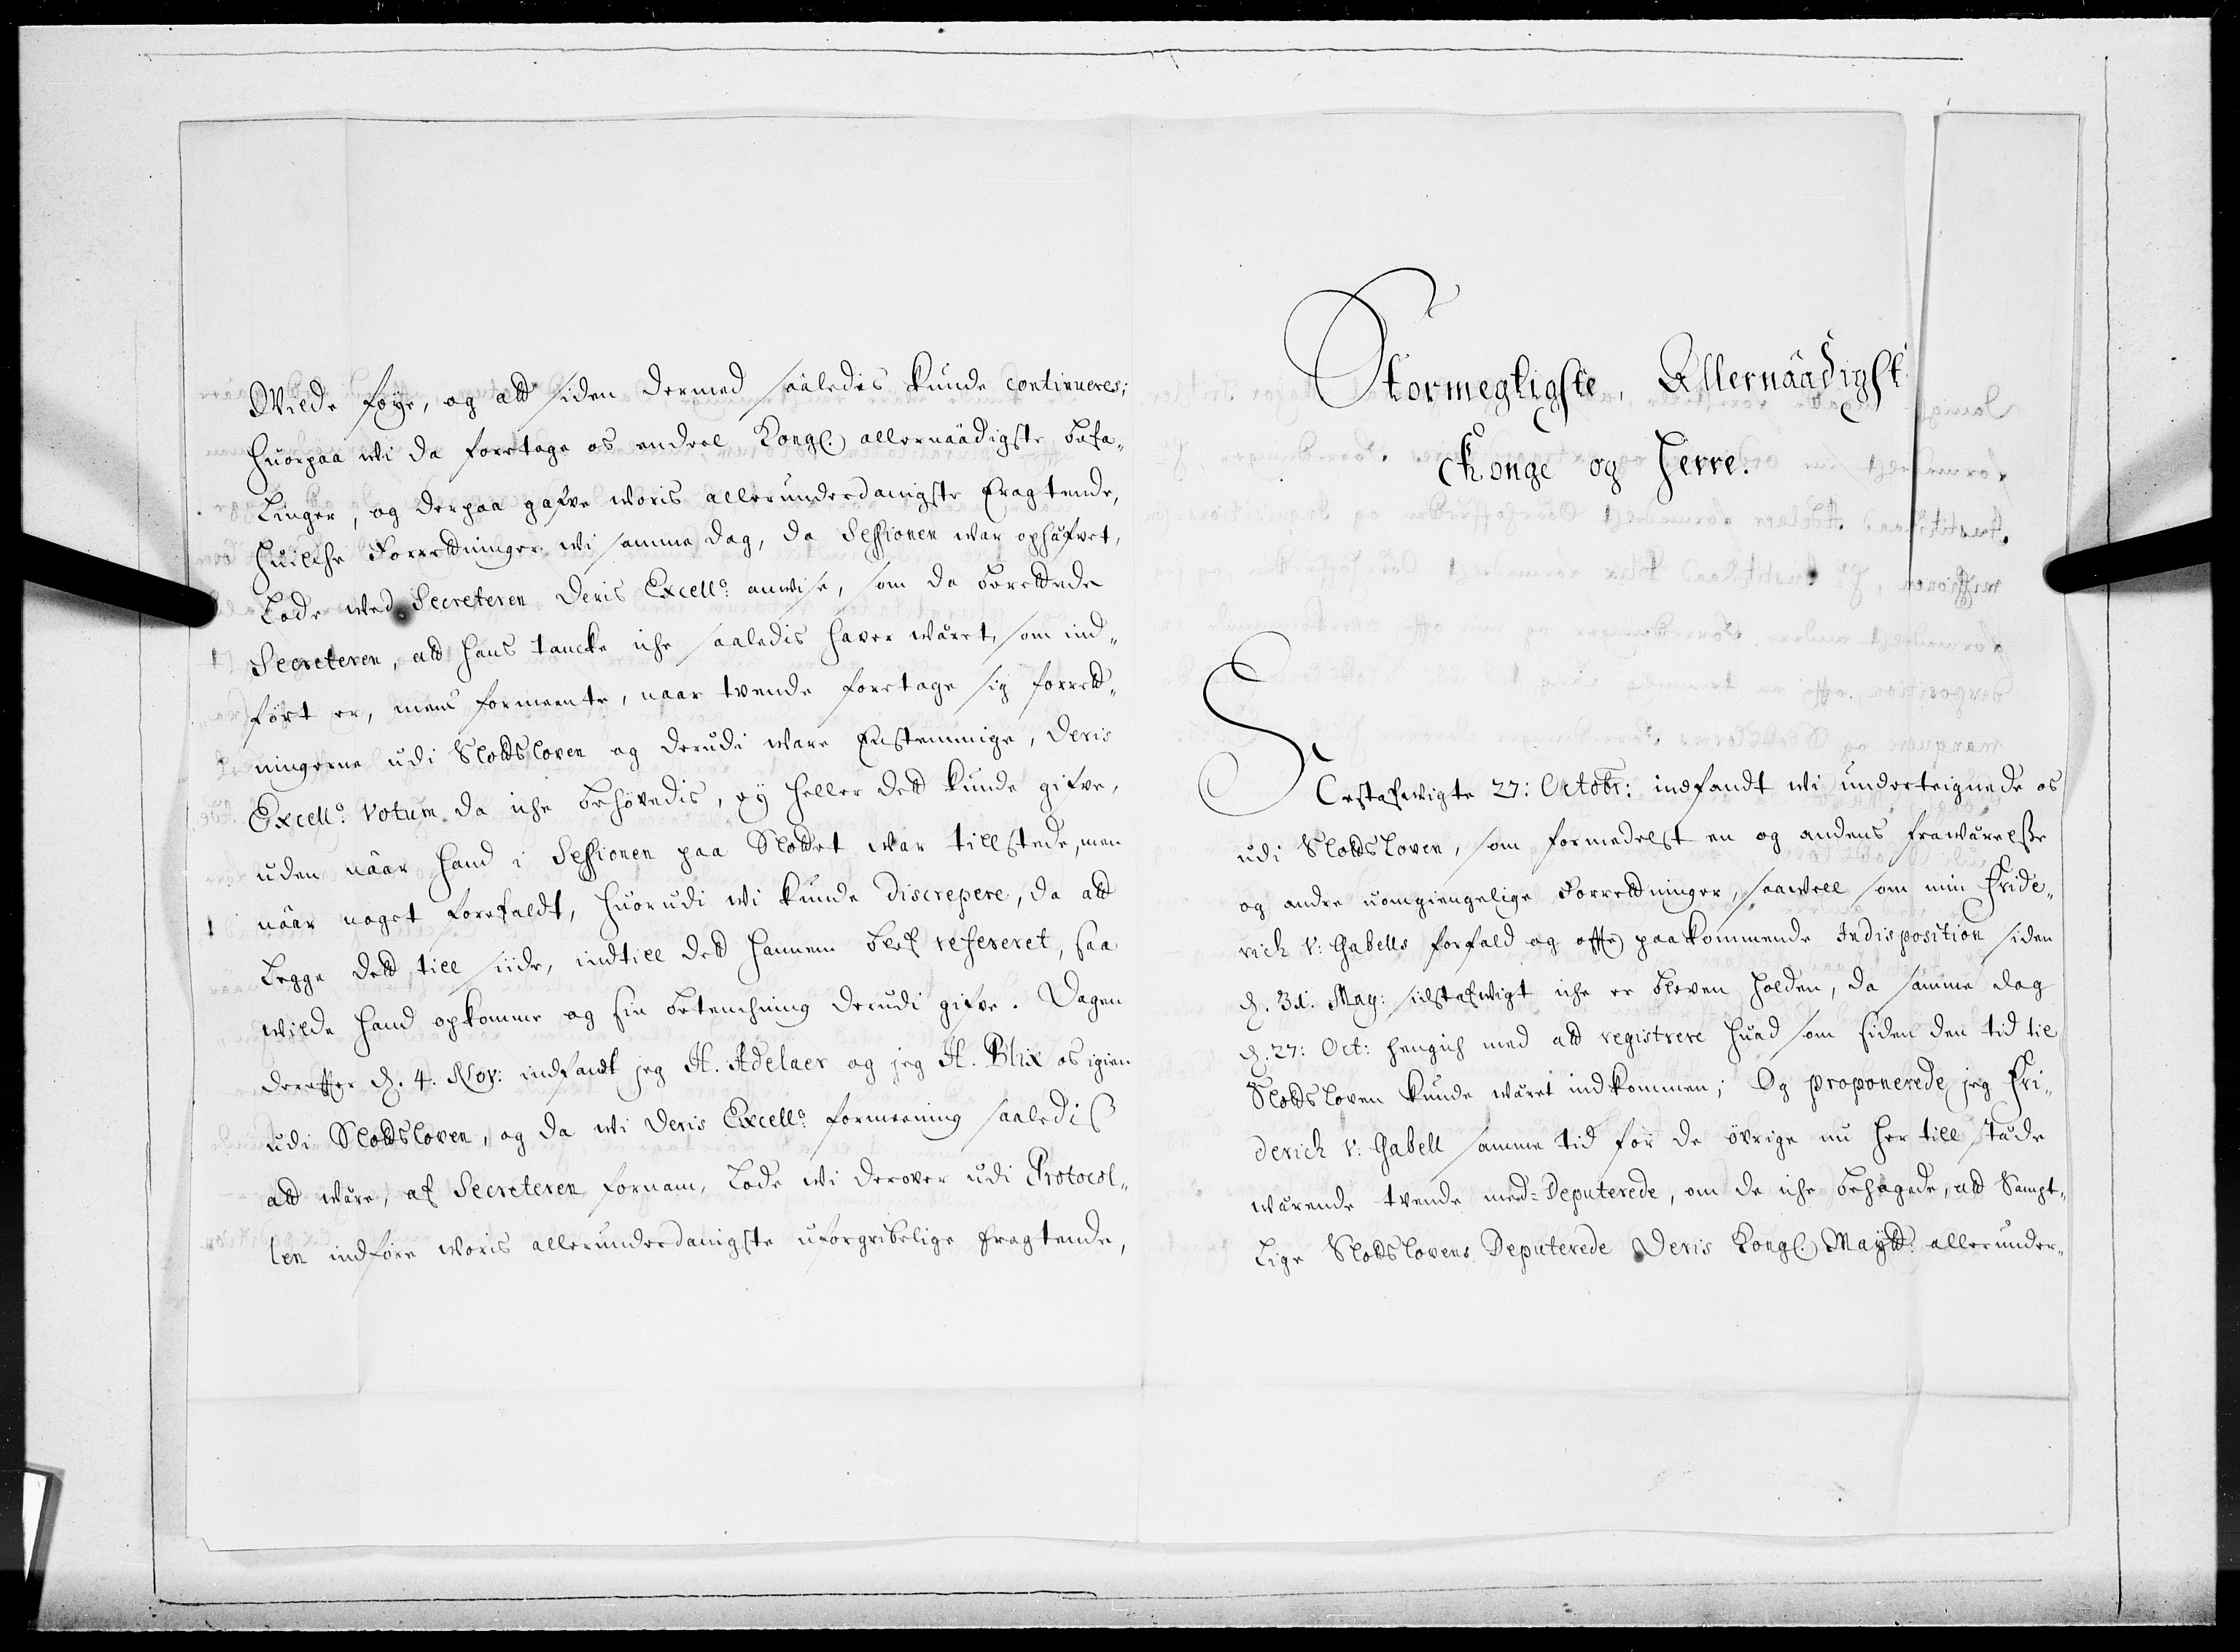 Wilde føye, og att siden dermed saaledis kunde continueres;
Huorpaa wi da foretoge os endeel Kongl: allernaadigste befa-
linger, og derpaa gafve woris allerunderdanigste Eragtende,
Huilche Forretninger wi samme dag, da Sessionen war ophæfvet,
Lode wed Secreteren Deris Excell: anwise, som da berettede
Secreteren, att hans tancke iche saaledis hafver wäret, som ind-
ført er, mens formeente, naar tvende foretoge sig forret-
ningerne udi Slotsloven og derudi ware Enstemmige, Deris
Excell: Votum da iche behøvedis, ey heller dett kunde gifve,
uden näar hand i Sessionen paa Slottet war tillstede, men
näar noget forefaldt, huorudi wi kunde discrepere, da att
Legge dett till siide, indtill dett hannem blef refereret, saa
wilde hand opkomme og sin betenchning derudi gifve. Dagen
derefter d. 4. Nov: indfandt jeg H. Adelaer og jeg H. Blix os igien
udi Slotsloven, og da wi Deris Excell: formeening saaledis
att wäre, af Secreteren fornam, Lode wi derover udi Protocol-
len indføre woris allerunderdanigste uforgribelige Eragtende,
Stormegtigste, Allernaadigste
Konge og Herre.
Sestafwigte 27: Octobr: indfandt wi underteignede os
udi Slotsloven, som formedelst en og andens frawärelse
og andre uomgiengelige Forretninger, saawell som min Fride-
rich v: Gabells forfald og offte paakommende Indisposition siden
d. 31. May: sidstafwigt iche er bleven holden, da samme dag
d. 27: Oct: hengich med att registrere huad som siden den tid til
Slotsloven kunde wäret indkommen; Og proponerede jeg Fri-
derich v: Gabell samme tid for de øvrige nu her till stæde
wärende tvende med-Deputerede, om de iche behagede, att Sampt-
lige Slotslovens Deputerede Deris Kongl: Maytt: allerunder-